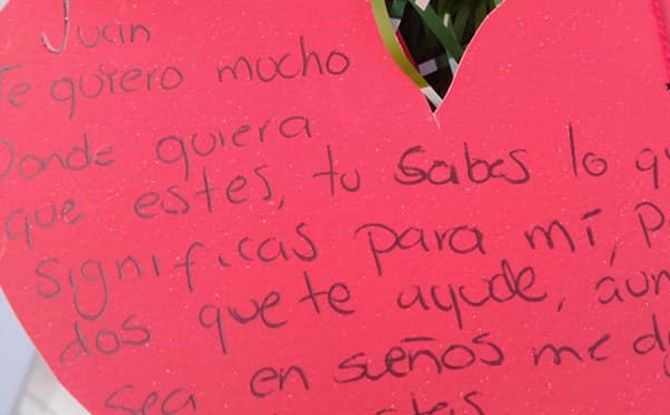 Juan
Te quiero mucho
Donde quiera
que estes, tu sabes lo
significas para mí,
dos que te ayude,
sea en sueños me